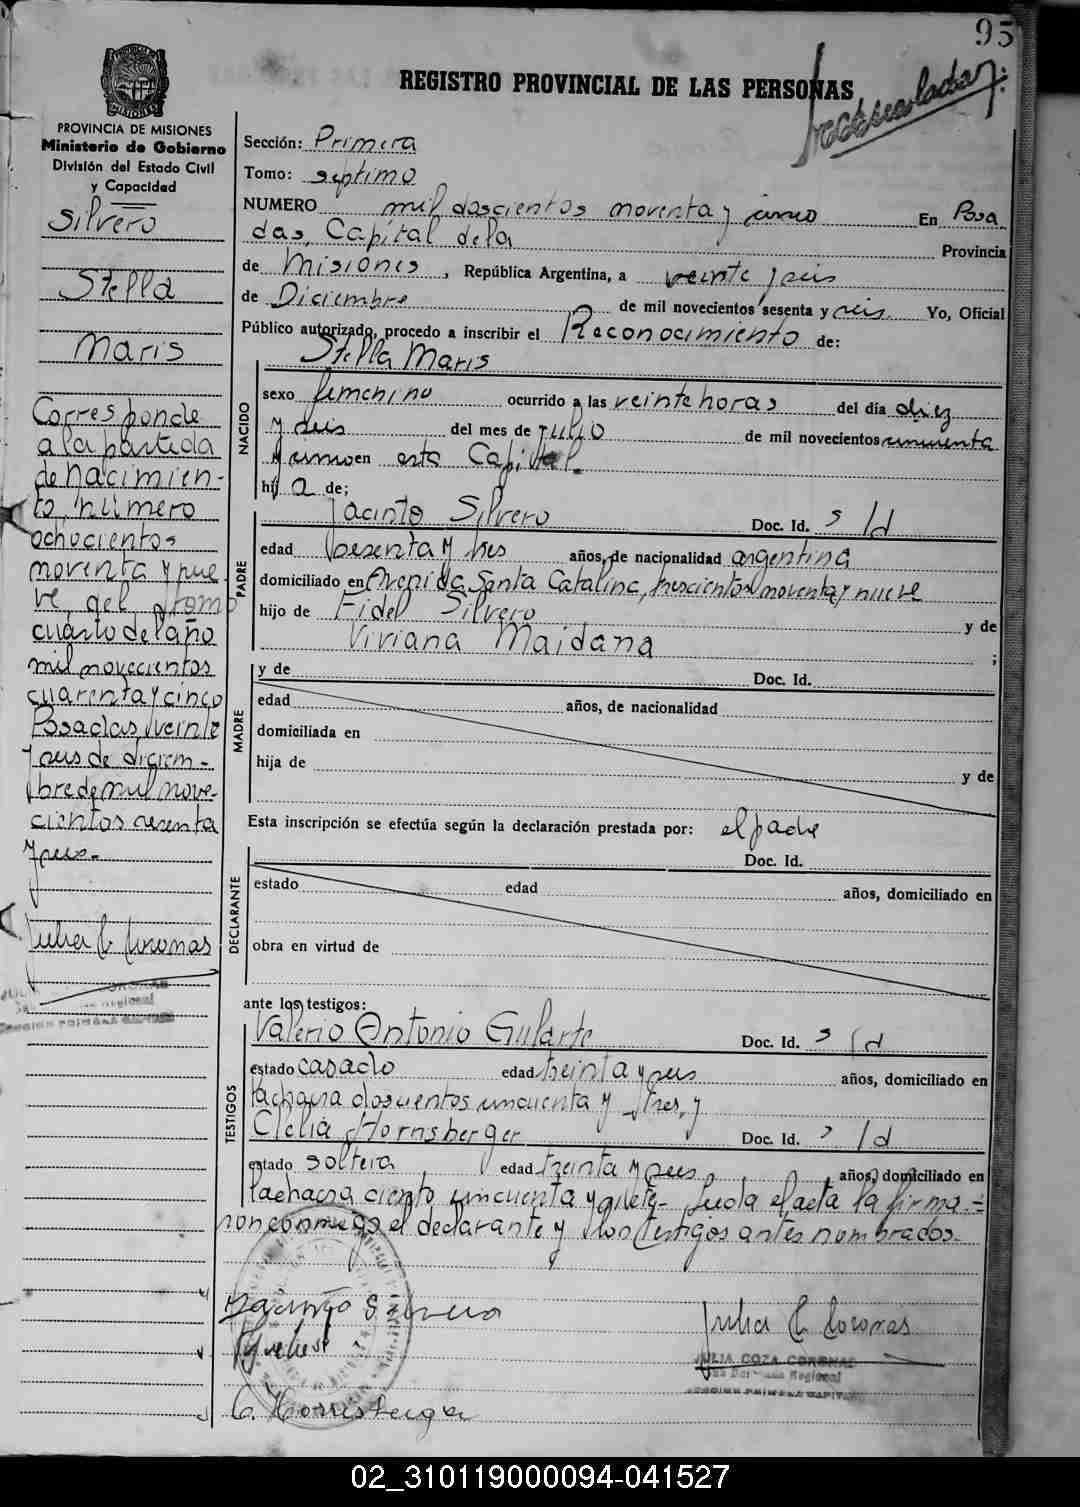 95
REGISTRO PROVINCIAL DE LAS PERSONAS
PROVINCIA DE MISIONES
Ministerio de Gobierno
División del Estado Civil
y Capacidad
Silvero
Stella
Maris
Corresponde
a la partida
de nacimien-
to, número
ochocientos
noventa y nue-
ve, del tomo
cuarto del año
mil novecientos
cuarenta y cinco
Posadas, veinte
y seis de diciem-
bre de mil nove-
cientos sesenta
y seis.-
Julia C. Coronas
Sección: Primera
Tomo: septimo
NUMERO mil doscientos noventa y cinco En Posa
das, Capital de la Provincia
de Misiones, República Argentina, a veinte y seis
de Diciembre de mil novecientos sesenta y seis. Yo, Oficial
Público autorizado, procedo a inscribir el Reconocimiento de:
Stella Maris
NACIDO
sexo femenino ocurrido a las veinte horas del día diez
y seis del mes de julio de mil novecientos cincuenta
y cinco en esta Capital.
hij a de;
PADRE
Jacinto Silvero Doc. Id. s/d
edad sesenta y tres años, de nacionalidad argentina
domiciliado en Avenida Santa Catalina, trescientos noventa y nueve
hijo de Fidel Silvero y de
Viviana Maidana ;
MADRE
y de Doc. Id.
edad años, de nacionalidad
domiciliada en
hija de y de
Esta inscripción se efectúa según la declaración prestada por: el padre
DECLARANTE
Doc. Id.
estado edad años, domiciliado en
obra en virtud de
ante los testigos:
TESTIGOS
Valerio Antonio Gularte Doc. Id. s/d
estado casado edad treinta y seis años, domiciliado en
la chacra doscientos cincuenta y tres, y
Clelia Hornsberger Doc. Id. s/d
estado soltera edad treinta y seis, años, domiciliado en
la chacra ciento cincuenta y siete- Leída el acta la firma-
ron conmigo el declarante y los testigos antes nombrados.-
Jacinto Silvero
Julia C. Coronas
JULIA COZA CORONAS
C. Hornsberger
02_310119000094-041527